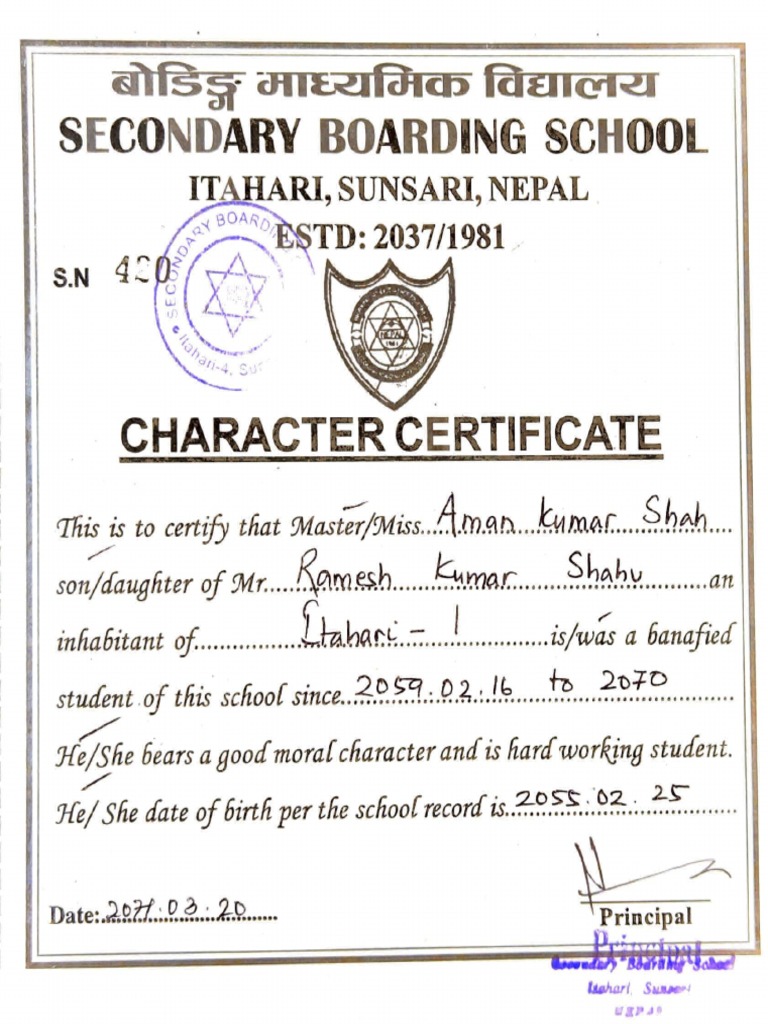 बोर्डिङ्ग माध्यमिक विद्यालय
SECONDARY BOARDING SCHOOL
ITAHARI, SUNSARI, NEPAL
ESTD: 2037/1981
S.N 420
SECONDARY BOARDING
Itahari-4, Sun
NEPAL
CHARACTER CERTIFICATE
This is to certify that Master/Miss Aman Kumar Shah
son/daughter of Mr. Ramesh Kumar Shahu an
inhabitant of Itahari - 1 is/was a banafied
student of this school since 2059.02.16 to 2070
He/She bears a good moral character and is hard working student.
He/ She date of birth per the school record is 2055.02.25
Date: 2071.03.20
Principal
Principal
Secondary Boarding School
Itahari, Sunsari